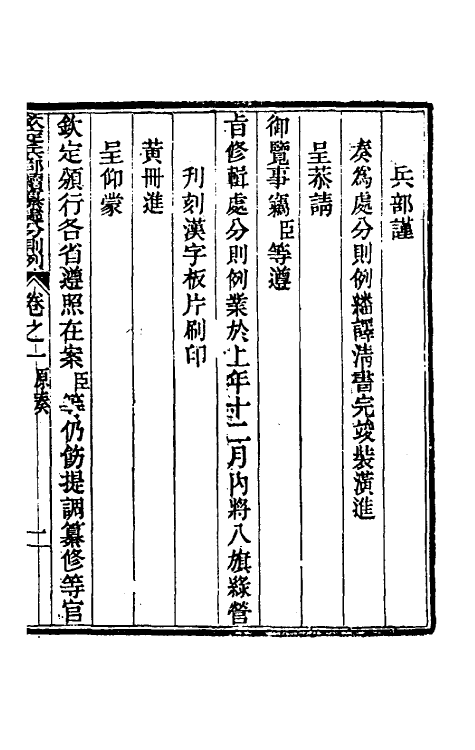 兵部謹
奏為處分則例繙譯淸書完竣裝潢進
呈恭請
御覽事竊臣等遵
旨修輯處分則例業於上年十二月內將八旗綠營
刋刻漢字板片刷印
黃冊進
呈仰蒙
欽定頒行各省遵照在案臣等仍飭提調纂修等官
卷之一 原奏 一